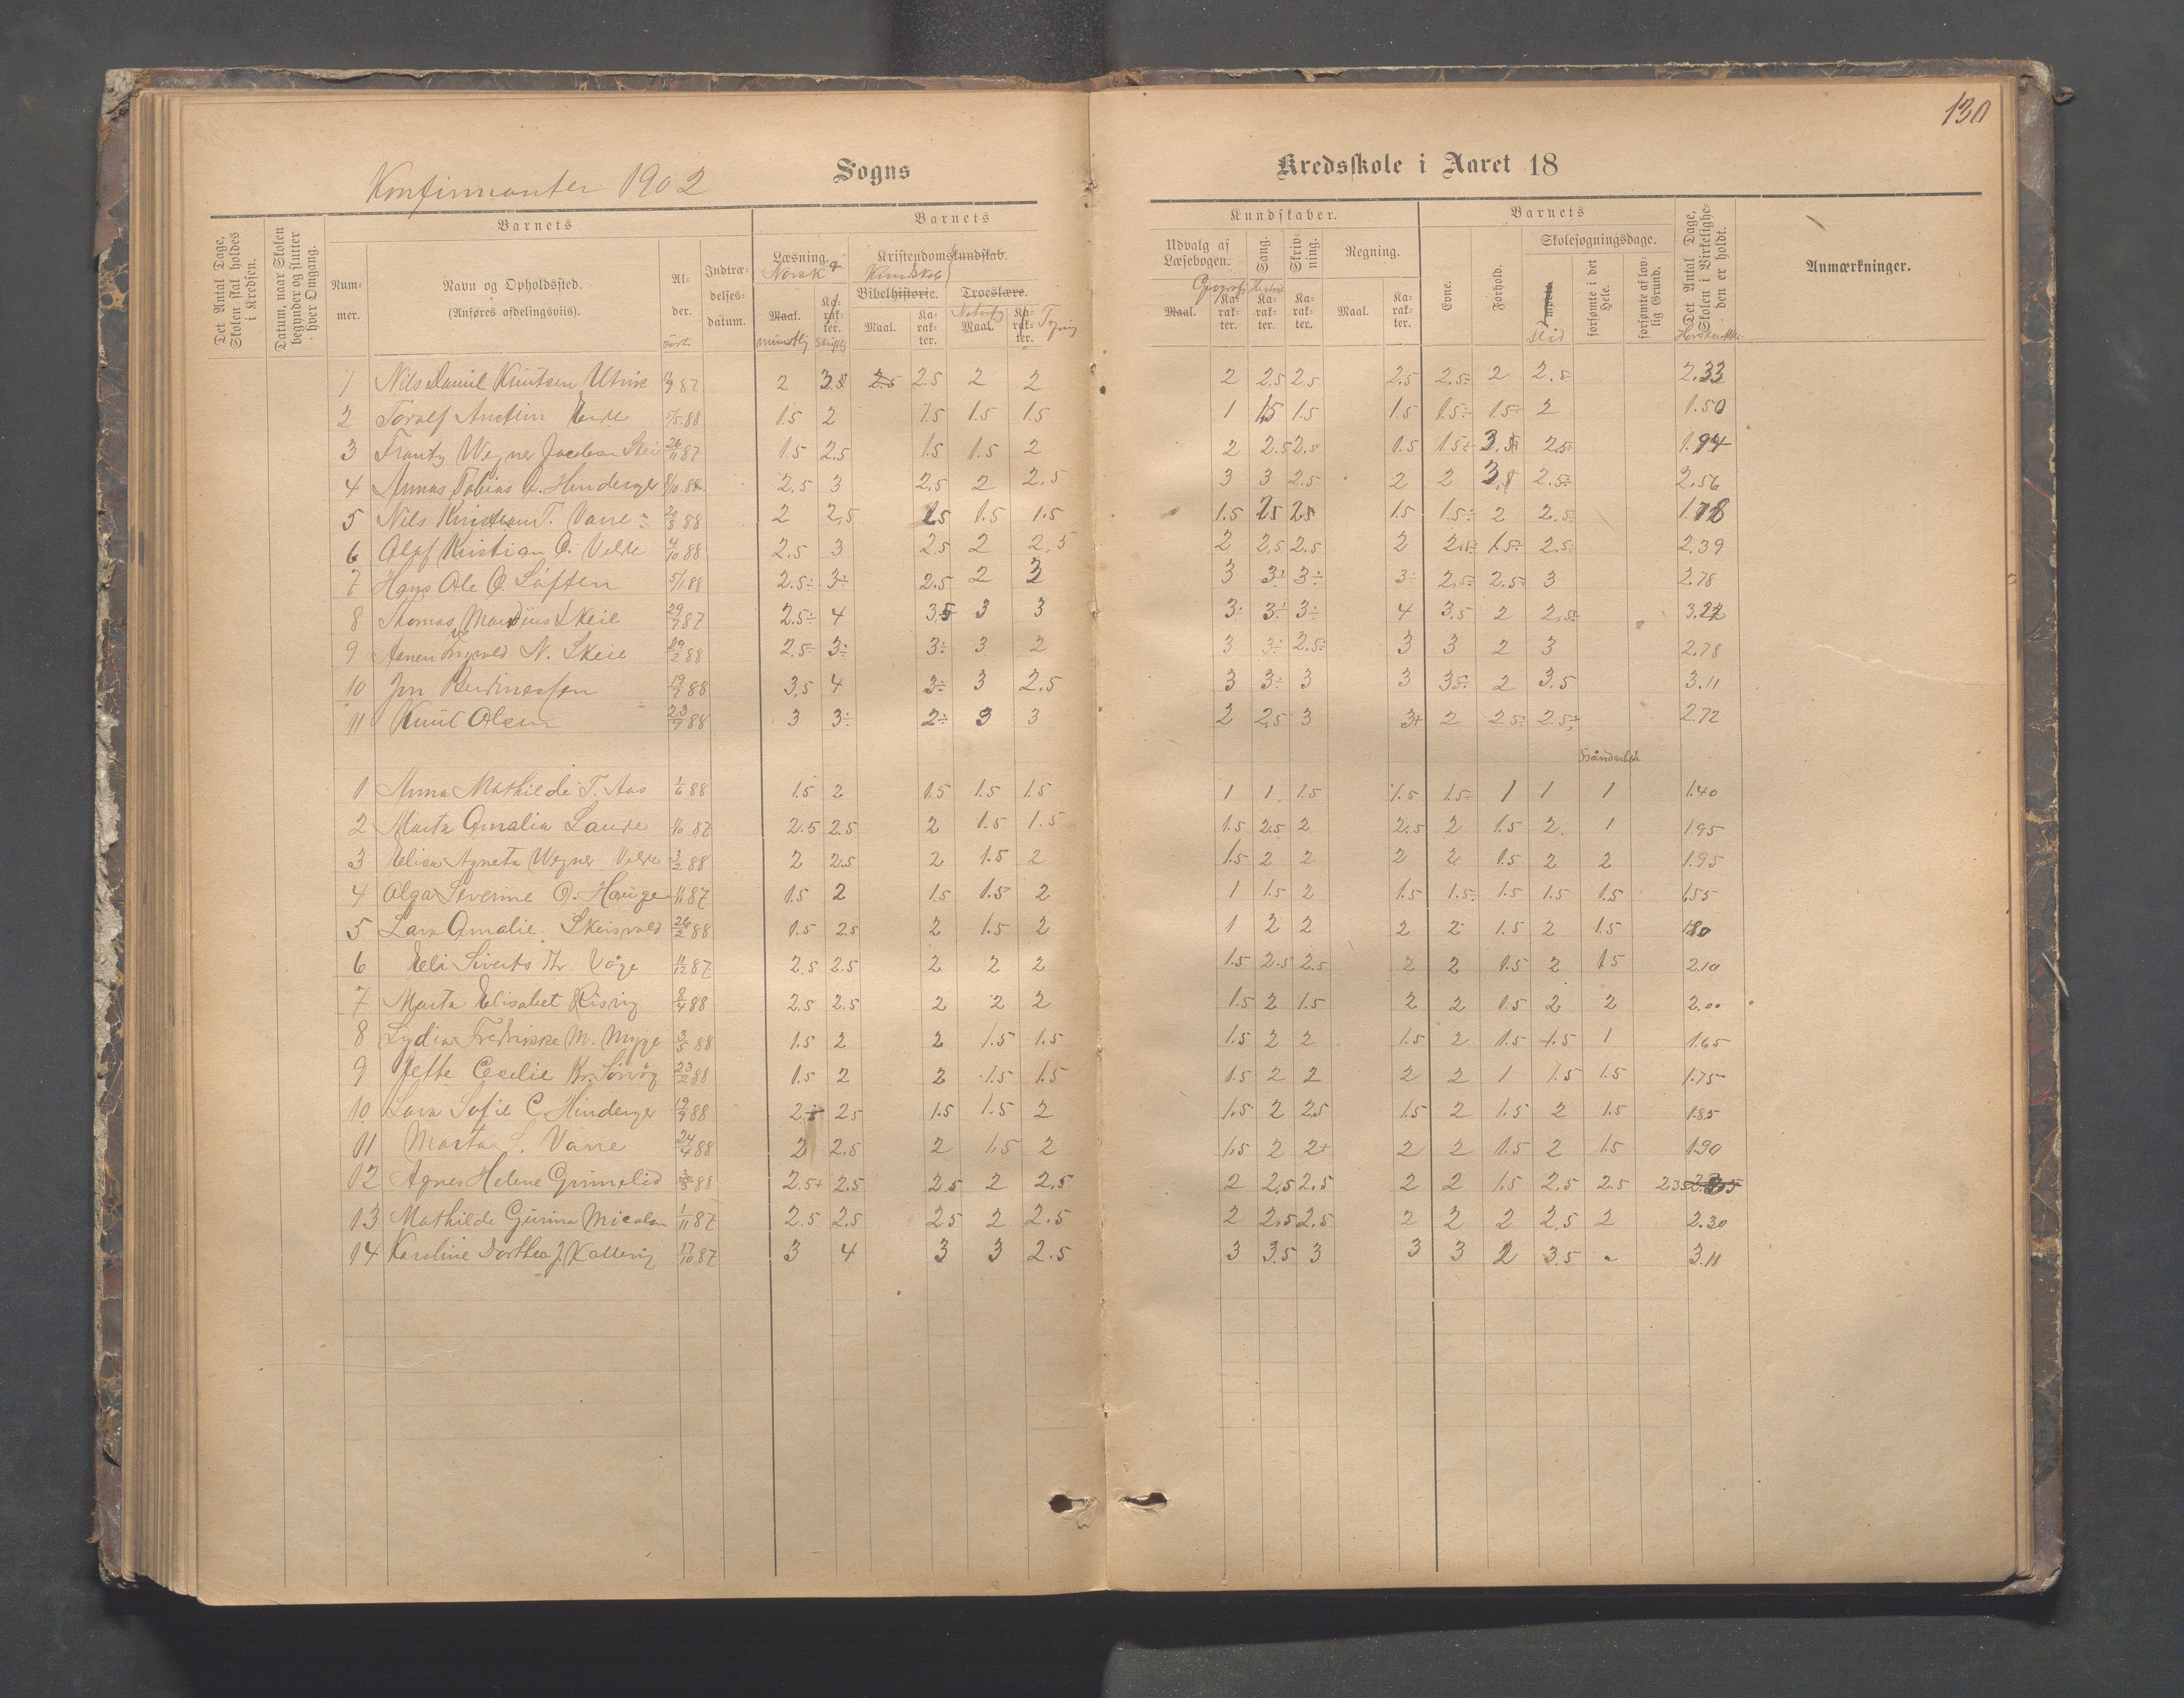 130
Konfirmanter 1902 Sogns Kredsskole i Aaret 18
Det Antal Dage, Skolen skal holdes i Kredsen.
Datum, naar Skolen begynder og slutter hver Omgang.
Barnets
Nummer.
Navn og Opholdssted.
(Anføres afdelingsviis).
Alder.
Indtrædelsesdatum.
Barnets Kundskaber.
Læsning. Norsk
Maal. mundtlig
Karakter. skriftlig
Kristendomskundskab. Kundskab
Bibelhistorie. Maal. Karakter.
Troeslære. Maal. Karakter.
Udvalg af Læsebogen. Geografi
Maal. Karakter.
Sang. Historie Karakter.
Skrivning. Karakter.
Regning. Maal. Karakter.
Barnets
Evne.
Forhold.
Skolesøgningsdage.
mødte sløid
forsømte i det Hele.
forsømte af lovlig Grund.
Det Antal Dage, Skolen i Virkeligheden er holdt.
Hovedkarakter
Anmærkninger.
1 Nils Daniel Knutsen Utvik 87 2 3.5 2.5 2.5 2 2 2 2.5 2.5 2.5 2.5÷ 2 2.5 2.33
2 Toralf Austin Eide 5/5.88 1.5 2 1.5 1.5 1.5 1 1.5 1.5 1.5 1.5÷ 1.5÷ 2 1.50
3 Frantz Wegner Jacobsen Skeie 26/11 87 1.5 2.5 1.5 1.5 2 2 2.5 2.5 1.5 1.5÷ 3.5 2.5÷ 1.94
4 Tobias Hinderager 88 2.5 3 2.5 2 2.5 3 3 2.5 2 2 3 2.5÷ 2.56
5 Nils Kristian T. Varre 20/3 88 2 2.5 2.5 1.5 1.5 1.5 2.5 2.5 1.5 1.5÷ 2 2.5÷ 1.78
6 Olaf Kristian O. Velde 4/10 88 2.5 3 2.5 2 2.5 2 2.5 2.5 2 2.5÷ 1.5÷ 2.5÷ 2.39
7 Hans Ole O. Løften 5/1.88 2.5÷ 3÷ 2.5 2 3 3 3÷ 3÷ 3÷ 2.5÷ 2.5÷ 3 2.78
8 Thomas Skeie 29/7 87 2.5÷ 4 3.5 3 3 3÷ 3÷ 3÷ 4 3.5 2 2.5÷ 3.22
9 Trygvald N. Skeie 29/2 88 2.5÷ 3÷ 3÷ 3 2 3 3÷ 2.5÷ 3 3 2 3 2.78
10 Jon 19/7 88 3.5 4 3÷ 3 2.5 3 3÷ 3 3 3.5÷ 2 3.5 3.11
11 Knut Olsen 23/9 88 3 3÷ 2÷ 3 3 2 2.5 3 3+ 2 2.5÷ 2.5÷ 2.72
Håndarbeide
1 Anna Mathilde T. Aas 1/6 88 1.5 2 1.5 1.5 1.5 1 1 1.5 1.5 1.5÷ 1 1 1 1.40
2 Marta Amalia Lande 87 2.5 2.5 2 1.5 1.5 1.5 2.5 2 2.5 2 1.5 2 1 1.95
3 Elisa Agneta Wegner Velde 3/2 88 2 2.5 2 1.5 2 1.5 2 2 2 2 1.5 2 2 1.95
4 Olga Severine O. Hauge 87 1.5 2 1.5 1.5 2 1 1.5 2 1.5 1.5÷ 1.5 1.5 1.5 1.55
5 Lara Amalie Skeisvold 26/2 88 1.5 2.5 2 1.5 2 1 2 2 2 2 1.5 2 1.5 1.80
6 Eli Siverts Dtr. Våge 11/12 87 2.5 2.5 2 2 2 1.5 2.5 2.5 2 2 1.5 2 1.5 2.10
7 Marta Elisabet Risvig 8/4 88 2.5 2.5 2 2 2 1.5 2 1.5 2 2 1.5 2 2 2.00
8 Lydia Fredrikke M. Myge 3/5 88 1.5 2 2 1.5 1.5 1.5 2 2 1.5 2 1.5 1.5 1 1.65
9 Jette Cecilie Kr. Sørvåg 23/2 88 1.5 2 2 1.5 1.5 1.5 2 2 2 2 1 1.5 1.5 1.75
10 Lara Sofie C Hinderager 19/9 88 2÷ 2.5 1.5 1.5 2 1.5 2 2.5 1.5 2 1.5 2 1.5 1.85
11 Marta S. Varre 24/4 88 2 2.5 2 1.5 2 1.5 2 2+ 2 2 1.5 2 1.5 1.90
12 Agnes Helene Grimelid 88 2.5+ 2.5 2.5 2 2.5 2 2.5 2.5 2 2 1.5 2.5 2.5 2.35
13 Mathilde Gurina Micalsen 1/11 87 2.5 2.5 2.5 2 2.5 2 2.5 2.5 2 2 2 2.5 2 2.30
14 Karoline Dorthea J. Kallevig 17/10 87 3 4 3 3 2.5 3 3.5 3 3 3 2 3.5 3.11